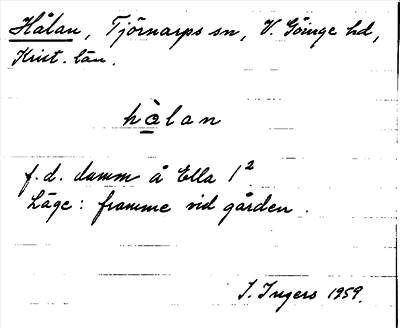 Hålan, Tjörnarps sn, V. Göinge hd,
Krist. län.
hålan
f.d. damm å Ella 1²
Läge: framme vid gården.
I. Ingers 1959.